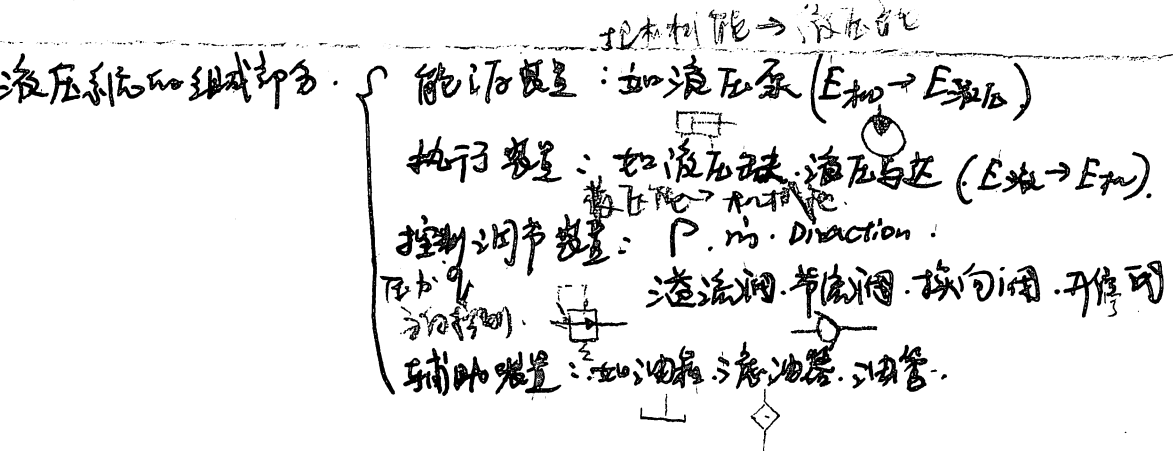 把机械能→液压能
液压系统的组成部分. { 能源装置：如液压泵 (E机→E液压)
执行装置：如液压缸.液压马达 (E液→E机).
液压能→机械能.
控制调节装置： P. ṁ. Diraction.
压力 q 溢流阀.节流阀.换向阀.开停阀
方向控制.
辅助装置：如油箱.滤油器.油管..